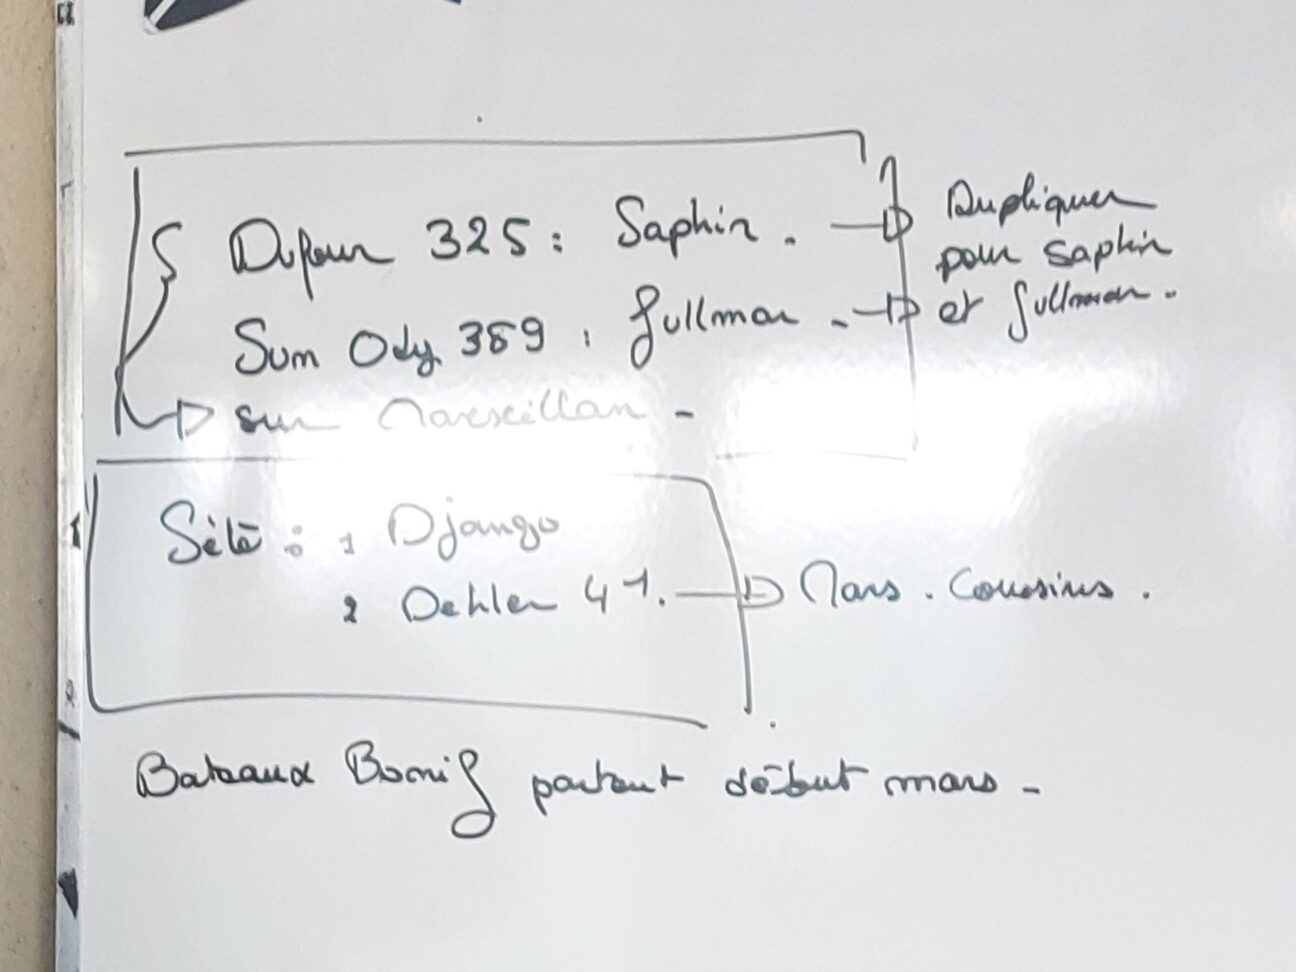 Dufour 325 : Saphir. → Dupliquer
pour saphir
Sun Ody 389 : Gullmar. → et Gullmar.
→ sur Marseillan -
Sète : 1 Django
2 Dehler 41. → Mars. Cousins.
Bateaux partent début mars -